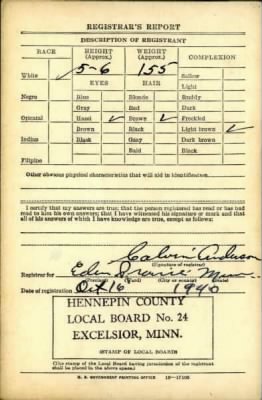 REGISTRAR'S REPORT
DESCRIPTION OF REGISTRANT
RACE HEIGHT (Approx.) WEIGHT (Approx.) COMPLEXION
White ✓ 5-6 155 Sallow
EYES HAIR Light
Negro Blue Blonde Ruddy
Gray Red Dark
Oriental Hazel ✓ Brown ✓ Freckled
Brown Black Light brown ✓
Indian Black Gray Dark brown
Bald Black
Filipino
Other obvious physical characteristics that will aid in identification
I certify that my answers are true; that the person registered has read or has had
read to him his own answers; that I have witnessed his signature or mark and that
all of his answers of which I have knowledge are true, except as follows:
Calvin Anderson
(Signature of registrar)
Registrar for Eden Prairie Minn.
(Precinct) (Ward) (City or county) (State)
Date of registration Oct 16 1940
HENNEPIN COUNTY
LOCAL BOARD No. 24
EXCELSIOR, MINN.
(STAMP OF LOCAL BOARD)
(The stamp of the Local Board having jurisdiction of the registrant
shall be placed in the above space.)
U. S. GOVERNMENT PRINTING OFFICE 16-17105